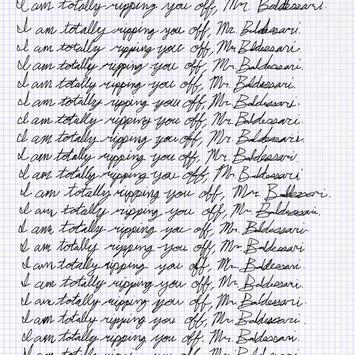 I am totally ripping you off, Mr. Baldessari.
I am totally ripping you off, Mr. Baldessari.
I am totally ripping you off, Mr. Baldessari
I am totally ripping you off, Mr. Baldessari.
I am totally ripping you off, Mr. Baldessari.
I am totally ripping you off, Mr. Baldessari.
I am totally ripping you off, Mr. Baldessari.
I am totally ripping you off, Mr. Baldessari.
I am totally ripping you off, Mr. Baldessari.
I am totally ripping you off, Mr. Baldessari.
I am totally ripping you off, Mr. Baldessari.
I am totally ripping you off, Mr. Baldessari.
I am totally ripping you off, Mr. Baldessari.
I am totally ripping you off, Mr. Baldessari.
I am totally ripping you off, Mr. Baldessari.
I am totally ripping you off, Mr. Baldessari.
I am totally ripping you off, Mr. Baldessari.
I am totally ripping you off, Mr. Baldessari.
I am totally ripping you off, Mr. Baldessari.